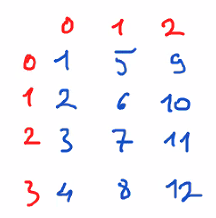 0 1 2
0 1 5 9
1 2 6 10
2 3 7 11
3 4 8 12